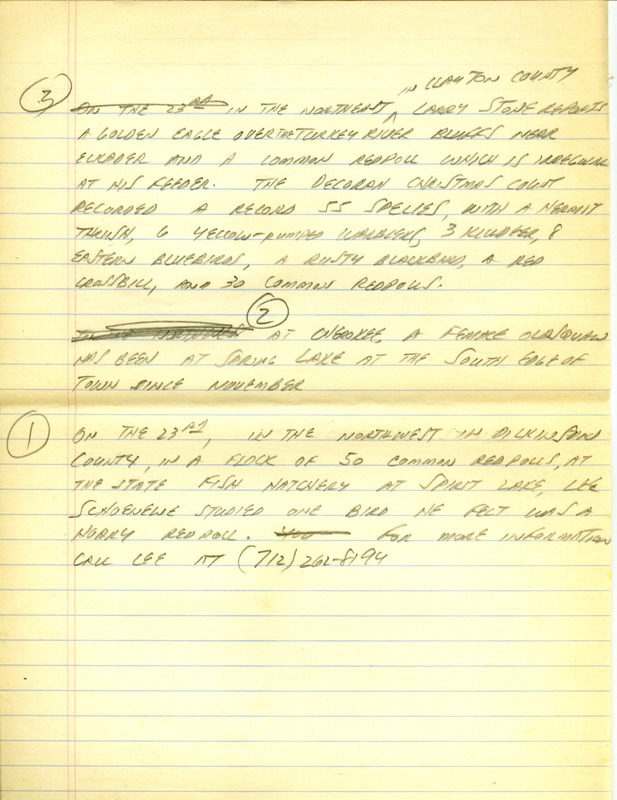 IN CLAYTON COUNTY
3 ON THE 23RD IN THE NORTHEAST ^ LARRY STONE REPORTS
A GOLDEN EAGLE OVER THE TURKEY RIVER BLUFFS NEAR
ELKADER AND A COMMON REDPOLL WHICH IS IRREGULAR
AT HIS FEEDER. THE DECORAH CHRISTMAS COUNT
RECORDED A RECORD 55 SPECIES, WITH A HERMIT
THRUSH, 6 YELLOW-RUMPED WARBLERS, 3 KILLDEER, 8
EASTERN BLUEBIRDS, A RUSTY BLACKBIRD, A RED
CROSSBILL, AND 30 COMMON REDPOLLS.
2
AT CHEROKEE, A FEMALE OLDSQUAW
HAS BEEN AT SPRING LAKE AT THE SOUTH EDGE OF
TOWN SINCE NOVEMBER
1 ON THE 23RD, IN THE NORTHWEST IN DICKINSON
COUNTY, IN A FLOCK OF 50 COMMON REDPOLLS, AT
THE STATE FISH HATCHERY AT SPIRIT LAKE, LEE
SCHOENEWE STUDIED ONE BIRD HE FELT WAS A
HOARY REDPOLL. FOR MORE INFORMATION
CALL LEE AT (712) 262-8194